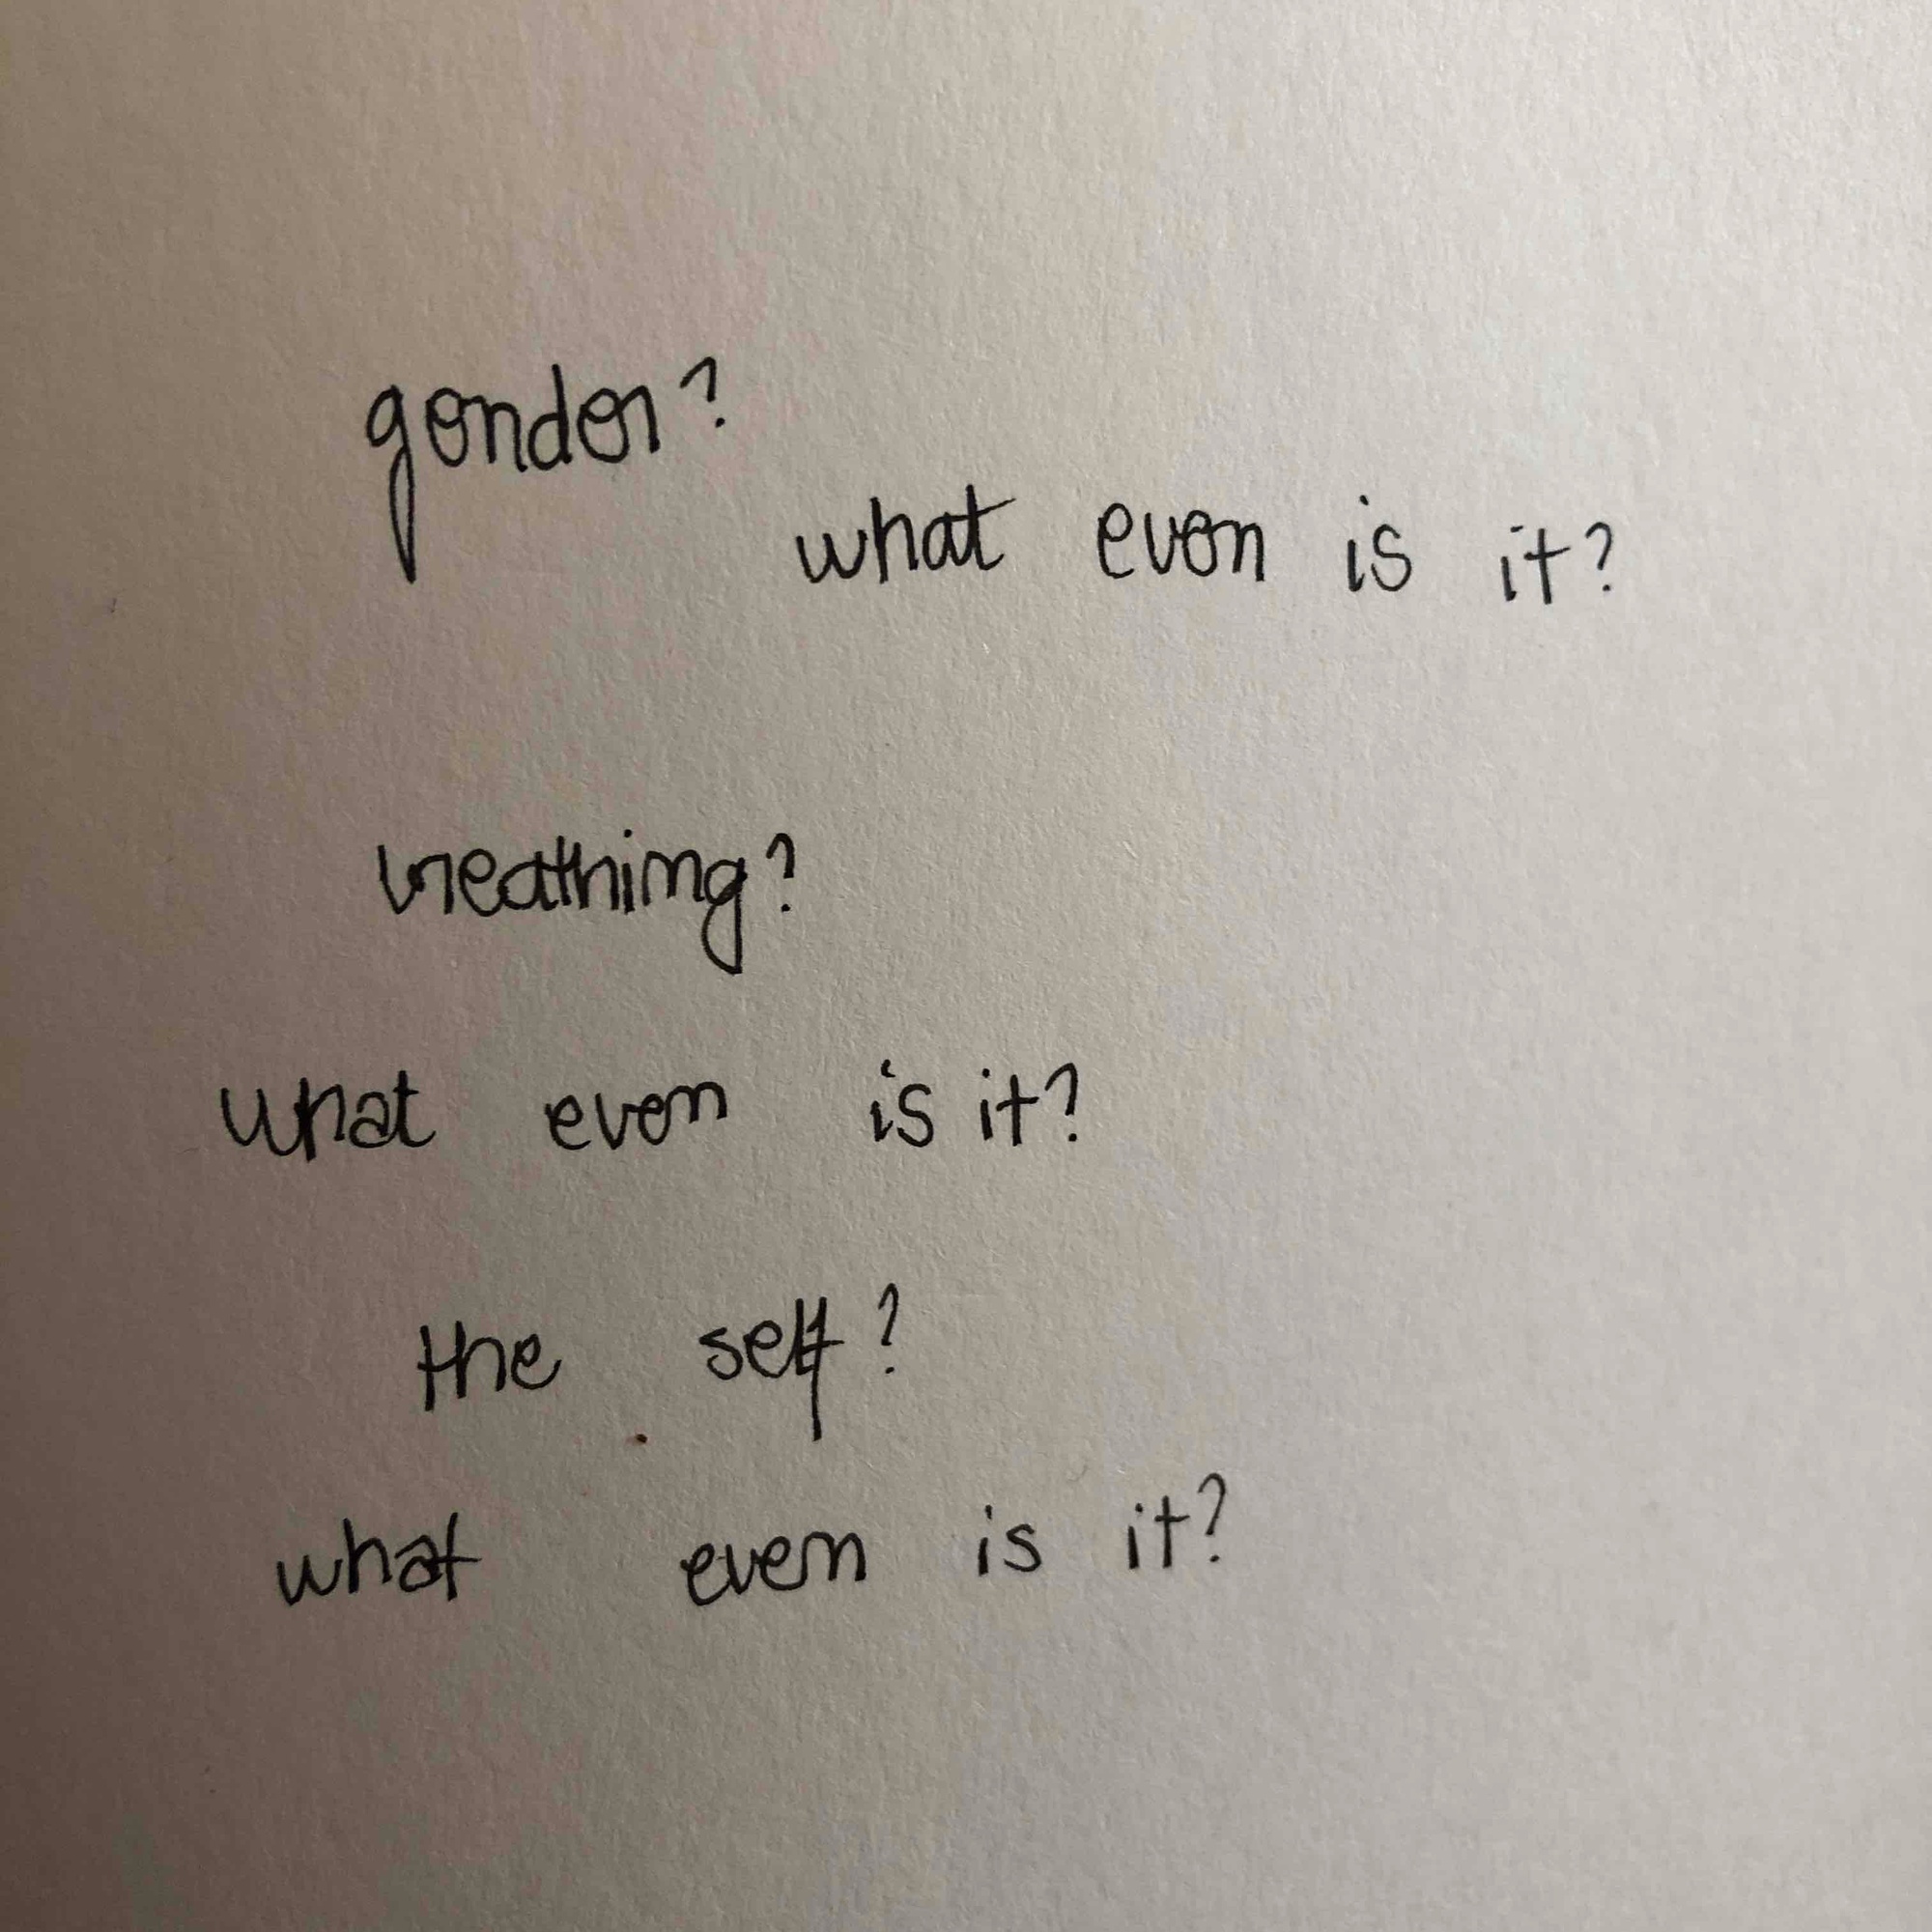 gender?
what even is it?
breathing?
what even is it?
the self?
what even is it?